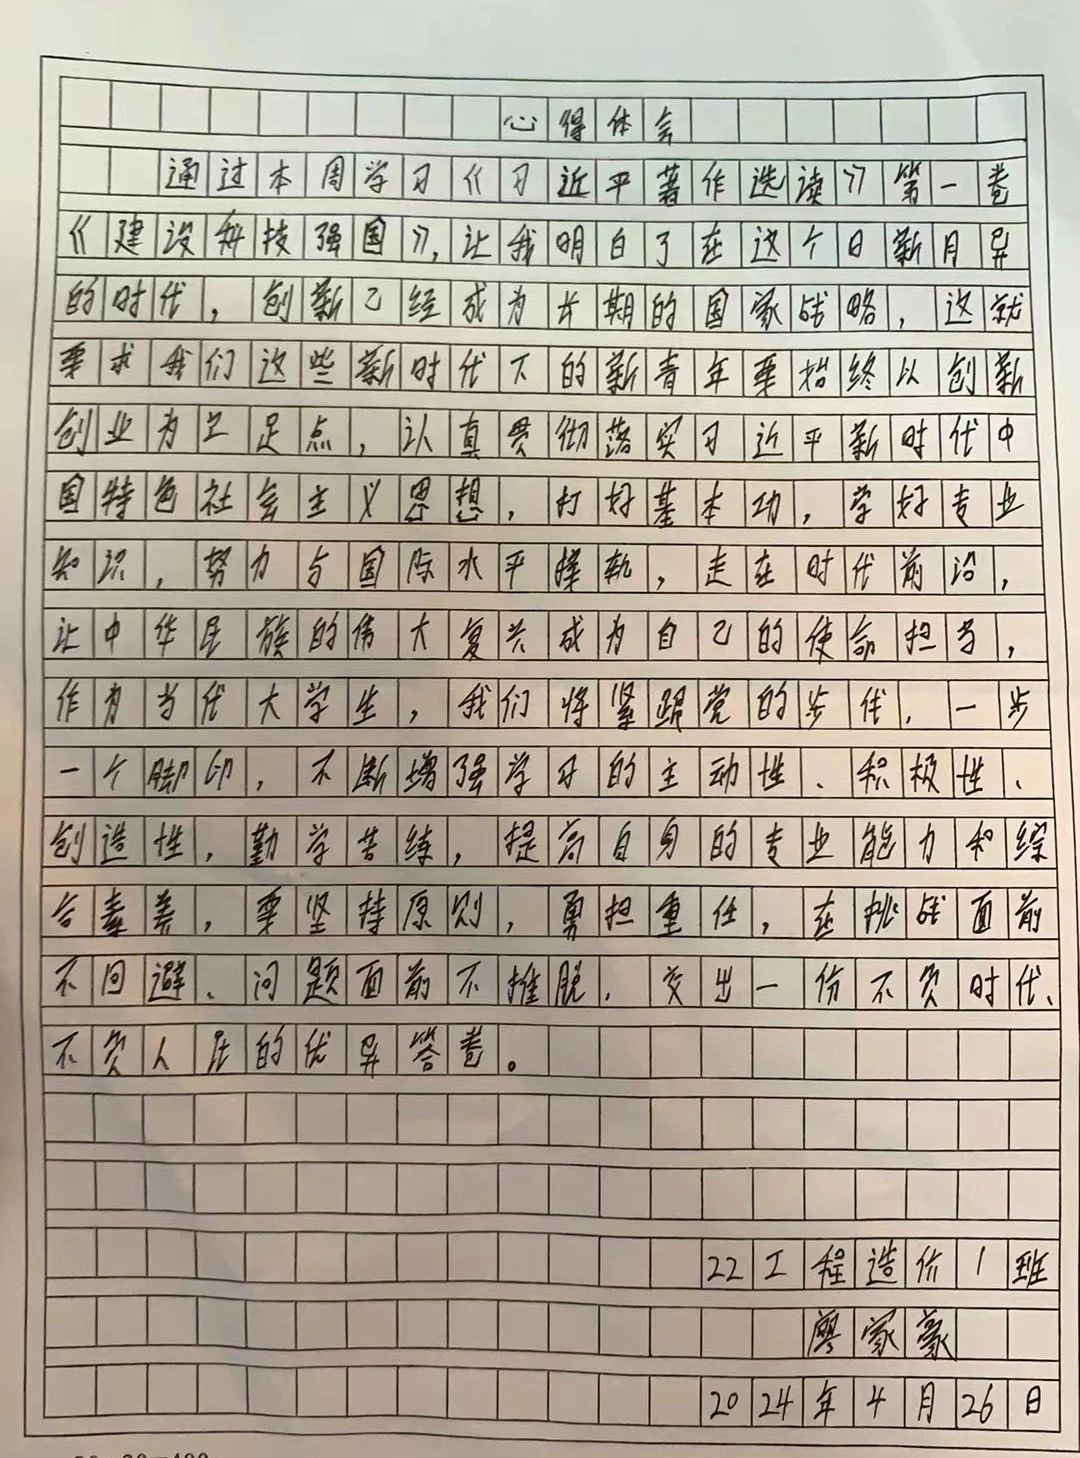 心得体会
通过本周学习《习近平著作选读》第一卷
《建设科技强国》,让我明白了在这个日新月异
的时代,创新已经成为长期的国家战略,这就
要求我们这些新时代下的新青年要始终以创新
创业为立足点,认真贯彻落实习近平新时代中
国特色社会主义思想,打好基本功,学好专业
知识,努力与国际水平接轨,走在时代前沿,
让中华民族的伟大复兴成为自己的使命担当,
作为当代大学生,我们将紧跟党的步伐,一步
一个脚印,不断增强学习的主动性、积极性、
创造性,勤学苦练,提高自身的专业能力和综
合素养,要坚持原则,勇担重任,在挑战面前
不回避、问题面前不推脱,交出一份不负时代、
不负人民的优异答卷。
22工程造价1班
廖家豪
2024年4月26日